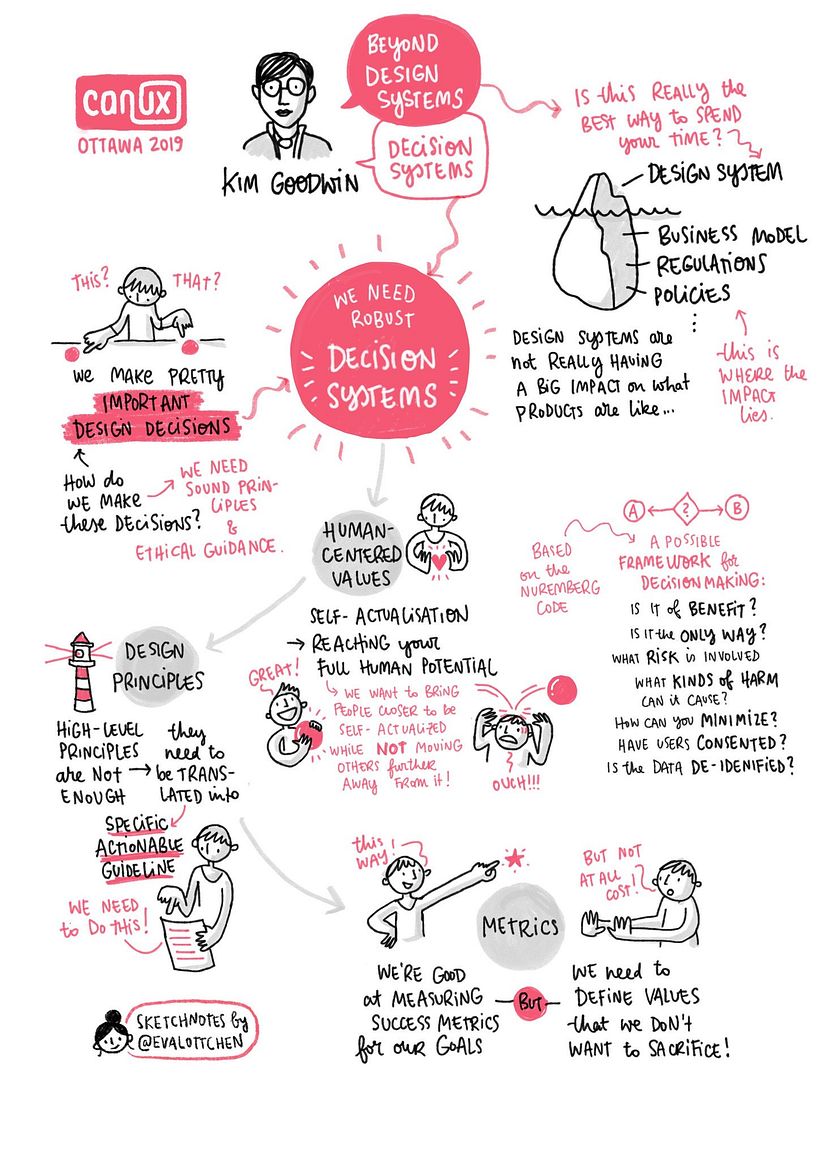 canUX
OTTAWA 2019
KIM GOODWIN
BEYOND
DESIGN
SYSTEMS
DECISION
SYSTEMS
IS this REALLY the
BEST WAY to SPEND
your TIME?
DESIGN SYSTEM
BUSINESS MODEL
REGULATIONS
POLICIES
DESIGN SYSTEMS are
not REALLY HAVING
A BIG IMPACT on what
PRODUCTS are LIKE...
this is
WHERE the
IMPACT
lies.
THIS?
THAT?
WE MAKE PRETTY
IMPORTANT
DESIGN DECISIONS
HOW do
WE MAKE
these DECISIONS?
WE NEED
SOUND PRIN-
CIPLES
&
ETHICAL GUIDANCE.
WE NEED
ROBUST
DECISION
SYSTEMS
HUMAN-
CENTERED
VALUES
SELF-ACTUALISATION
→ REACHING your
FULL HUMAN POTENTIAL
GREAT!
WE WANT to BRING
PEOPLE CLOSER to be
SELF-ACTUALIZED
WHILE NOT MOVING
OTHERS further
AWAY FROM it!
OUCH!!!
BASED
on the
NUREMBERG
CODE
A
?
B
A POSSIBLE
FRAMEWORK for
DECISION MAKING:
IS IT of BENEFIT?
IS it the ONLY WAY?
WHAT RISK is INVOLVED
WHAT KINDS of HARM
CAN it CAUSE?
HOW CAN you MINIMIZE?
HAVE USERS CONSENTED?
IS the DATA DE-IDENIFIED?
DESIGN
PRINCIPLES
HIGH-LEVEL
PRINCIPLES
are NOT
ENOUGH
→ they
need to
be TRANS-
LATED into
SPECIFIC
ACTIONABLE
GUIDELINE
WE NEED
to Do THIS!
this
WAY!
METRICS
BUT NOT
AT ALL
COST!
WE'RE GOOD
at MEASURING
SUCCESS METRICS
for our GOALS
BUT
WE need to
DEFINE VALUES
that we DON'T
WANT to SACRIFICE!
SKETCHNOTES by
@EVALOTTCHEN